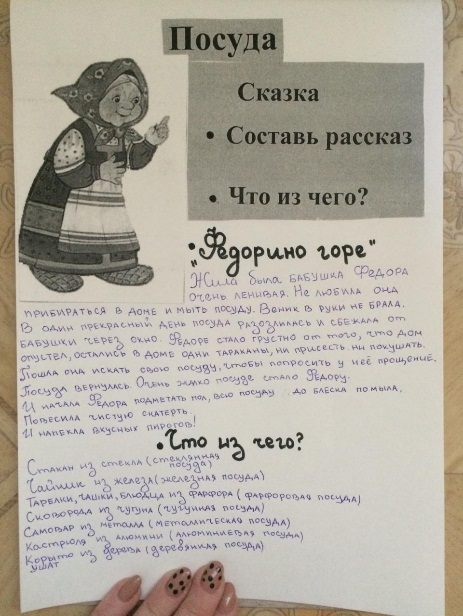 Посуда
Сказка
• Составь рассказ
• Что из чего?
• „Федорино горе"
Жила была бабушка Федора
очень ленивая. Не любила она
прибираться в доме и мыть посуду. Веник в руки не брала.
В один прекрасный день посуда разозлилась и сбежала от
бабушки через окно. Федоре стало грустно от того, что дом
опустел, остались в доме одни тараканы, ни присесть ни покушать.
Пошла она искать свою посуду, чтобы попросить у неё прощение.
Посуда вернулась. Очень жалко посуде стало Федору.
И начала Федора подметать пол, всю посуду до блеска помыла,
Повесила чистую скатерть.
И напекла вкусных пирогов!
• Что из чего?
Стакан из стекла (стеклянная
посуда)
Чайник из железа (железная посуда)
Тарелки, чашки, блюдца из фарфора (фарфоровая посуда)
Сковорода из чугуна (чугунная посуда)
Самовар из металла (металическая посуда)
Кастрюля из алюмини (алюминиевая посуда)
Корыто из дерева (деревянная посуда)
ушат